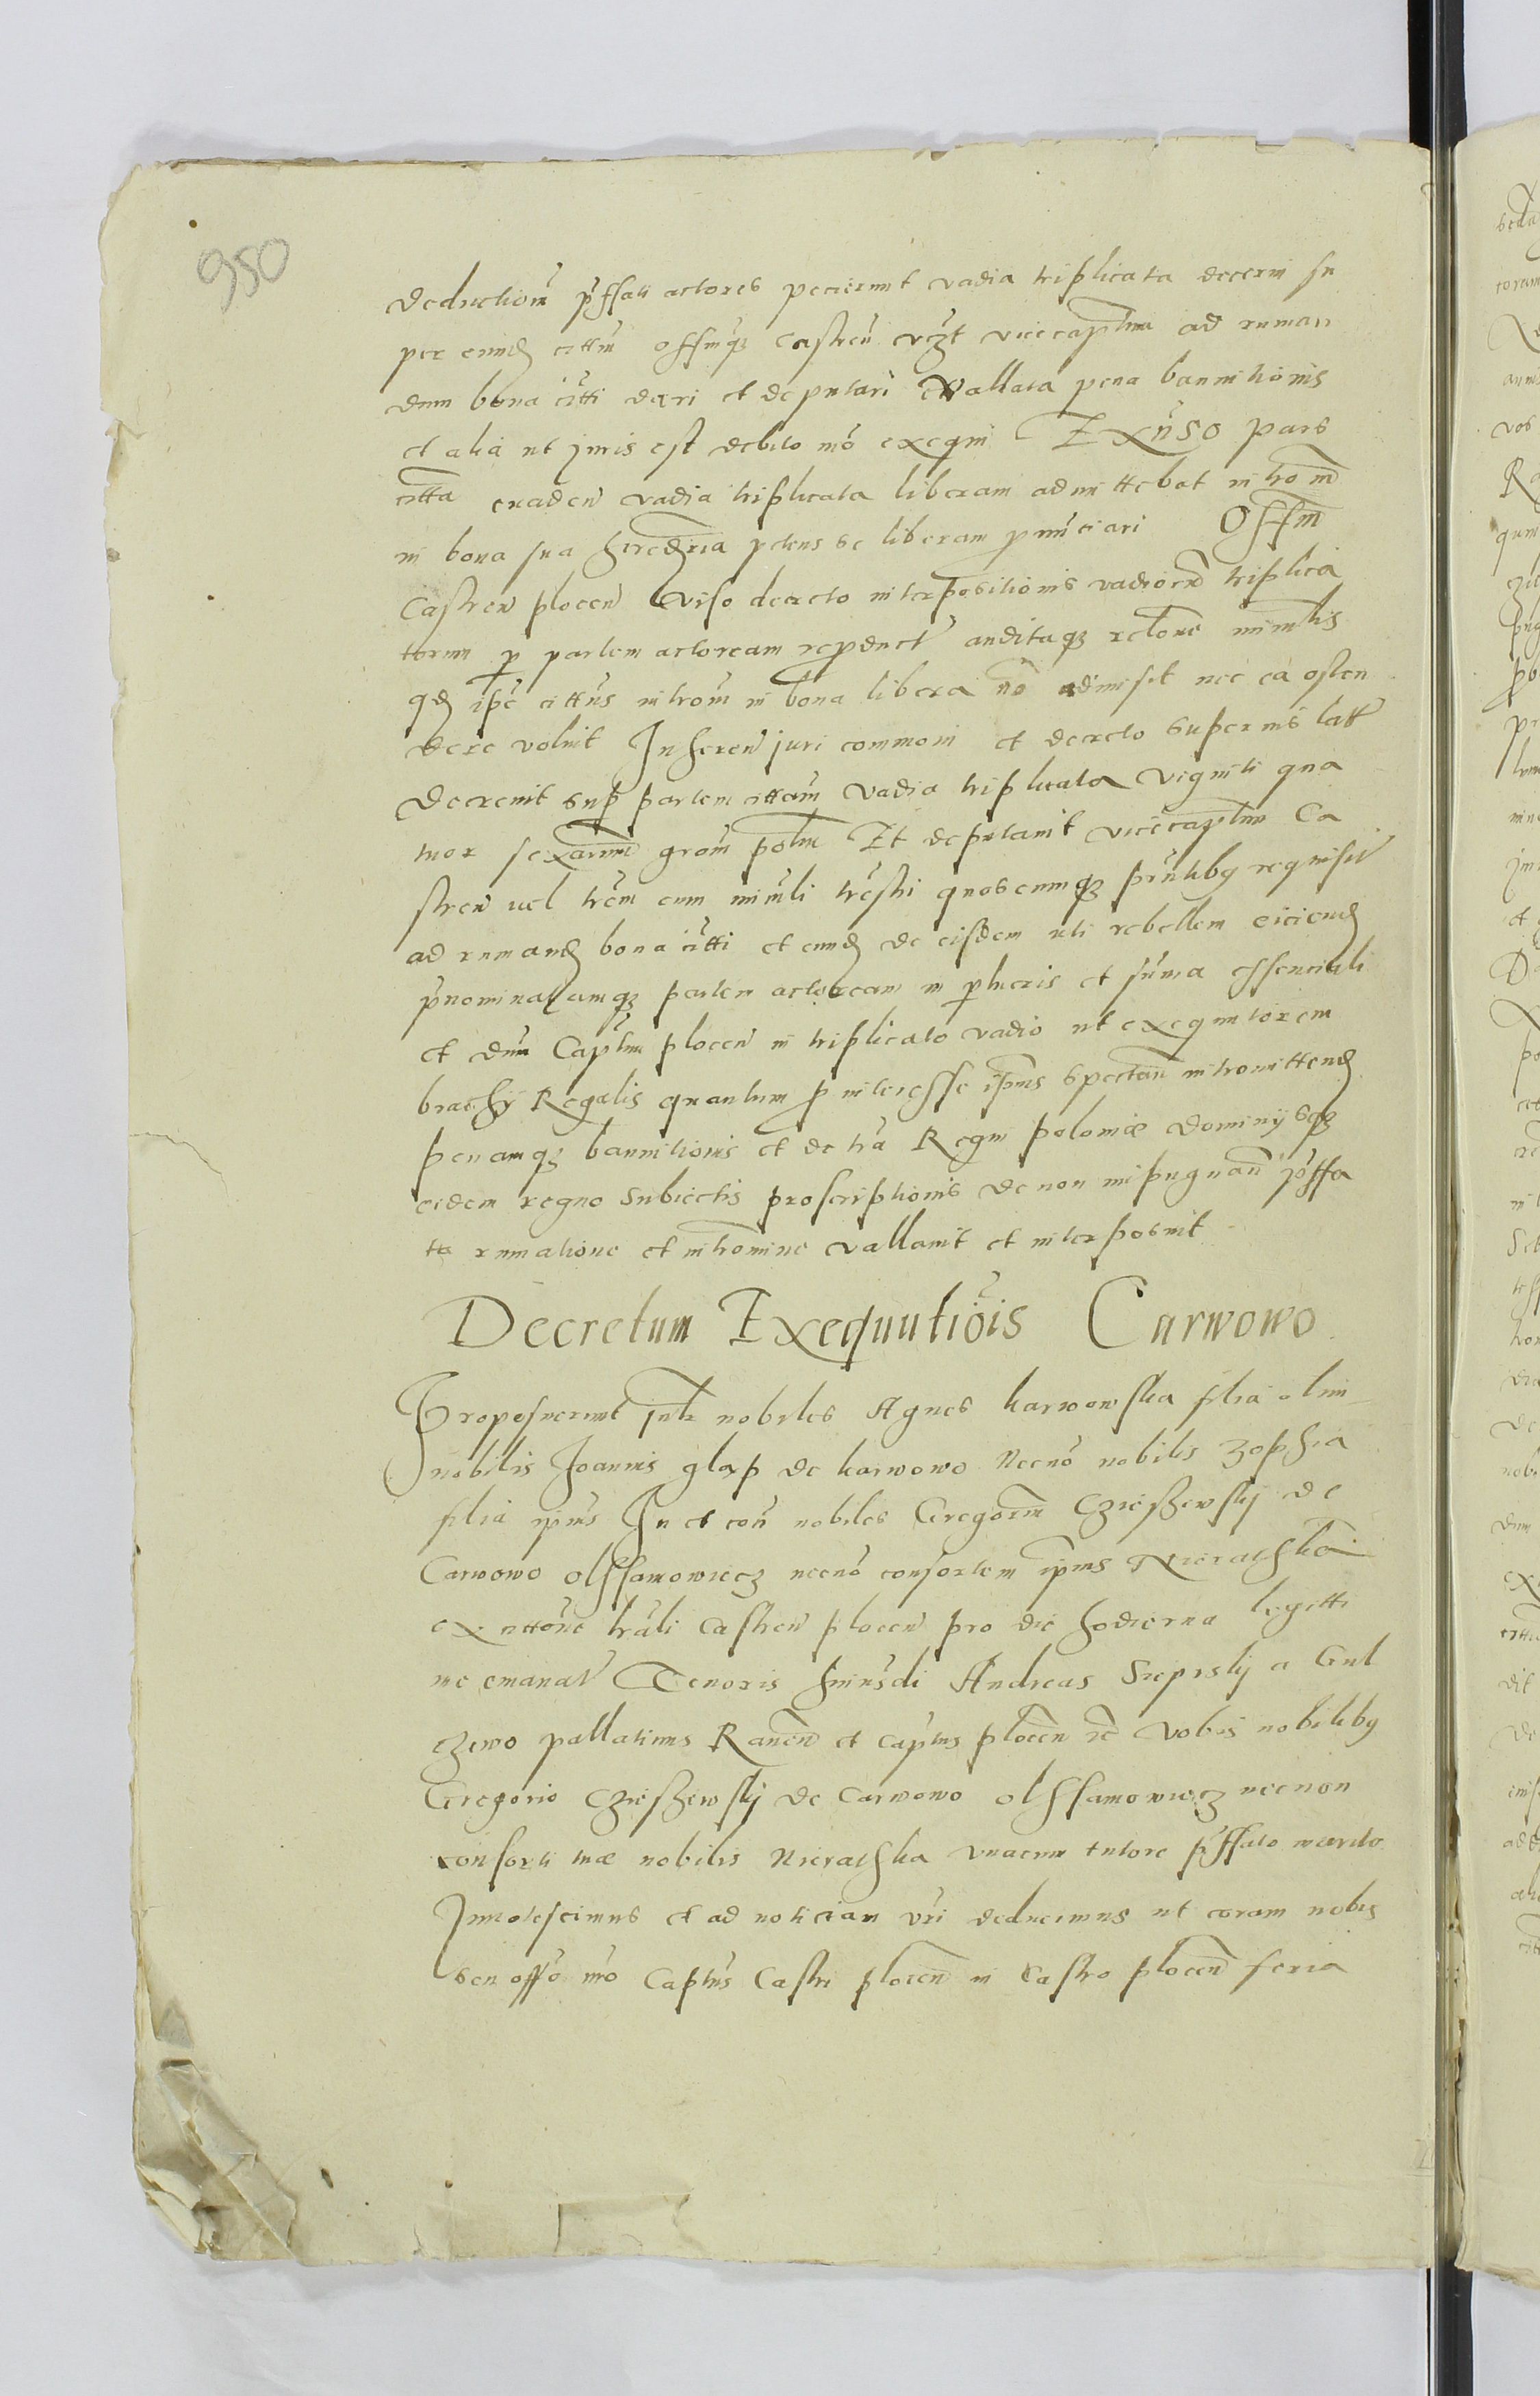 980
deductioni pffati actores pecierunt vadia triplicata decerni su
per eund cittm offmqz castren vczt vicecaptm ad ruman
dum bona citti dari et deputari et vallata pena bannitionis
et alia ut juris est debito mo exequi Exnso pars
citta evaden vadia triplicata liberam admittebat introm
in bona sua hereditaria petens se liberam pnunciari Offm
Castren plocen viso decreto interpositionis vadiorum triplica
torum p partem actoream reproduct auditaqz relone minrlis
qd ipe cittus introm in bona libera no admisit nec ea osten
dere voluit Inheren juri commoni et decreto superius latt
Decrevit sup partem cittam vadia triplicata viginti qua
tuor sexarum grom polm Et deputavit vicecaptm Ca
stren vel trem cum minrli trestri quoscumqz prntiby requisit
ad rumand bona citti et eund de eisdem uti rebellem eiciend
pnominatamqz partem actoream in p lucris et suma essenciali
et dnm Captm plocen in triplicato vadio ut exequutorem
brachy Regalis quantum p interesse ipius spectan intromittend
penamqz bannitionis et de tra Regni poloniæ dominysqz
eidem regno subiectis proscriptionis de non inpugnan pffa
ta rumatione et intromine vallavit et interposuit
Decretum Exequutiois Carwowo
Proposuerunt jntr nobiles Agnes karwowska filia olim
nobilis Joannis glap de karwowo Necno nobilis zophia
filia ipius In et con nobiles Gregorm Czieszewsky de
Carwowo olssamowiecz necno consortem ipius Nieraczka
ex cittone trali Castren plocen pro die hodierna legitti
me emanat Tenoris huiusdi Andreas Sieprsky a Gul
czewo pallatinus Raven et captus plocen rc Vobis nobiliby
Gregorio Czieszewsky de Carwowo olssamowiecz necnon
consorti tuæ nobilis Nieraczka unacum tutore pffato marito
Innotescimus et ad noticiam vri deducimus ut coram nobis
seu offo nro Captus Castri plocen in Castro plocen feria